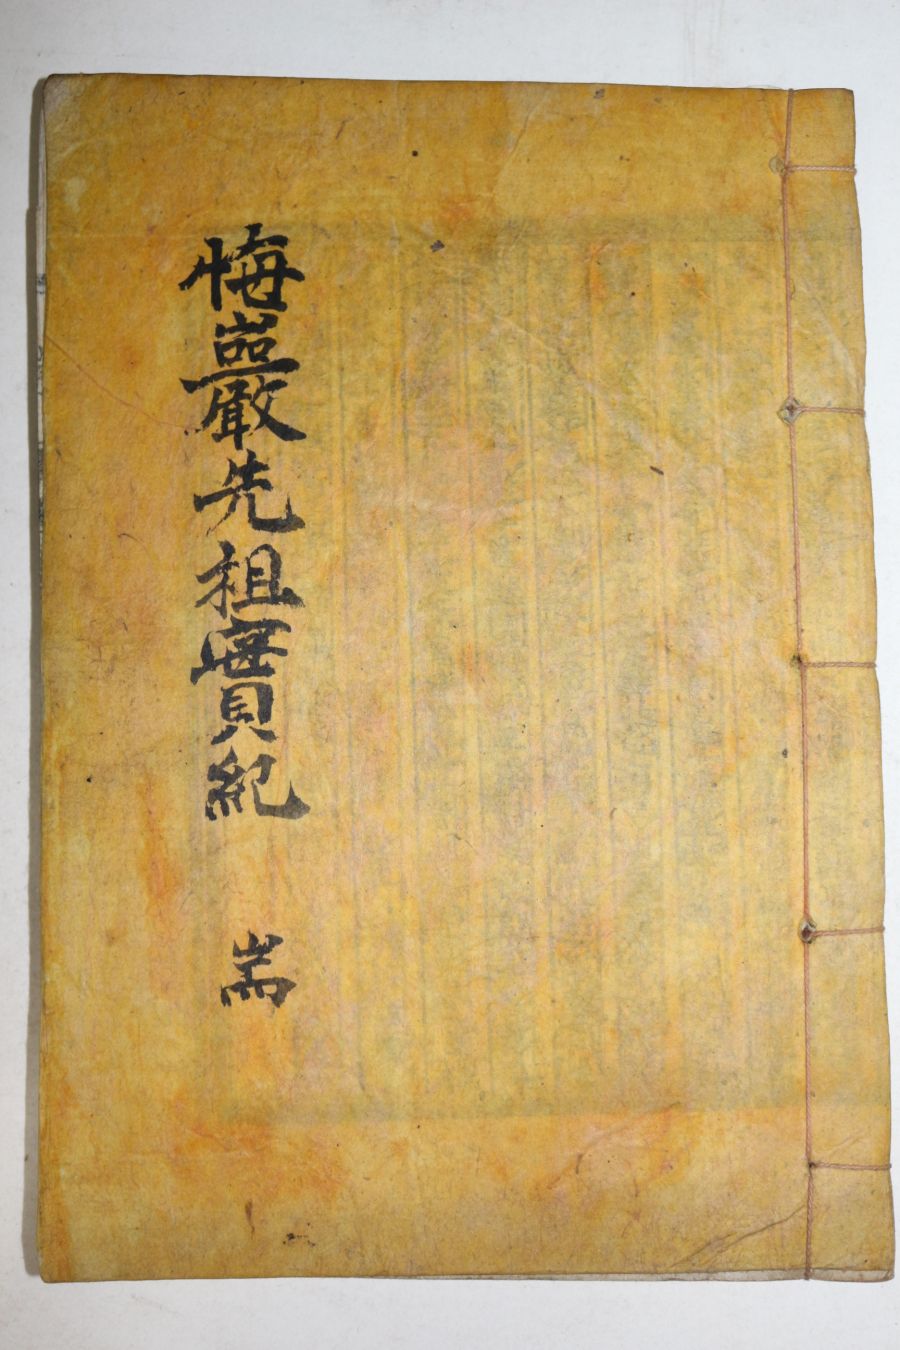 悔巖先祖實紀 耑